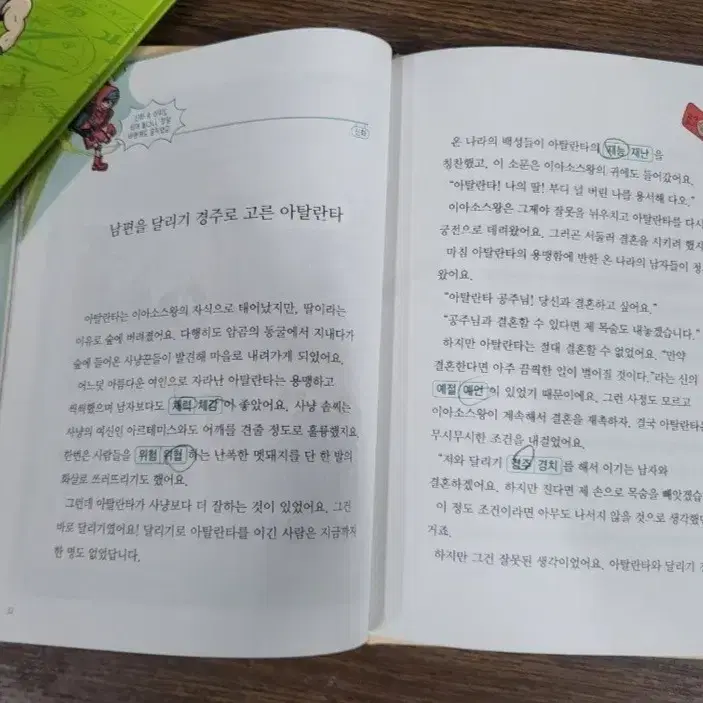 신화
남편을 달리기 경주로 고른 아탈란타
아탈란타는 이아소스왕의 자식으로 태어났지만, 딸이라는
이유로 숲에 버려졌어요. 다행히도 암곰의 동굴에서 지내다가
숲에 들어온 사냥꾼들이 발견해 마을로 내려가게 되었어요.
어느덧 아름다운 여인으로 자라난 아탈란타는 용맹하고
씩씩했으며 남자보다도 체력 체감 이 좋았어요. 사냥 솜씨는
사냥의 여신인 아르테미스와도 어깨를 견줄 정도로 훌륭했지요.
한번은 사람들을 위험 위협 하는 난폭한 멧돼지를 단 한 발의
화살로 쓰러뜨리기도 했어요.
그런데 아탈란타가 사냥보다 더 잘하는 것이 있었어요. 그건
바로 달리기였어요! 달리기로 아탈란타를 이긴 사람은 지금까지
한 명도 없었답니다.
32
온 나라의 백성들이 아탈란타의 재능 재난 을
칭찬했고, 이 소문은 이아소스왕의 귀에도 들어갔어요.
“아탈란타! 나의 딸! 부디 널 버린 나를 용서해 다오.”
이아소스왕은 그제야 잘못을 뉘우치고 아탈란타를 다시
궁전으로 데려왔어요. 그러곤 서둘러 결혼을 시키려 했지
마침 아탈란타의 용맹함에 반한 온 나라의 남자들이 청
왔어요.
“아탈란타 공주님! 당신과 결혼하고 싶어요.”
“공주님과 결혼할 수 있다면 제 목숨도 내놓겠습니다.”
하지만 아탈란타는 절대 결혼할 수 없었어요. “만약
결혼한다면 아주 끔찍한 일이 벌어질 것이다.”라는 신의
예절 예언 이 있었기 때문이에요. 그런 사정도 모르고
이아소스왕이 계속해서 결혼을 재촉하자, 결국 아탈란타는
무시무시한 조건을 내걸었어요.
“저와 달리기 경주 경치 를 해서 이기는 남자와
결혼하겠어요. 하지만 진다면 제 손으로 목숨을 빼앗겠습
이 정도 조건이라면 아무도 나서지 않을 것으로 생각했던
거죠.
하지만 그건 잘못된 생각이었어요. 아탈란타와 달리기